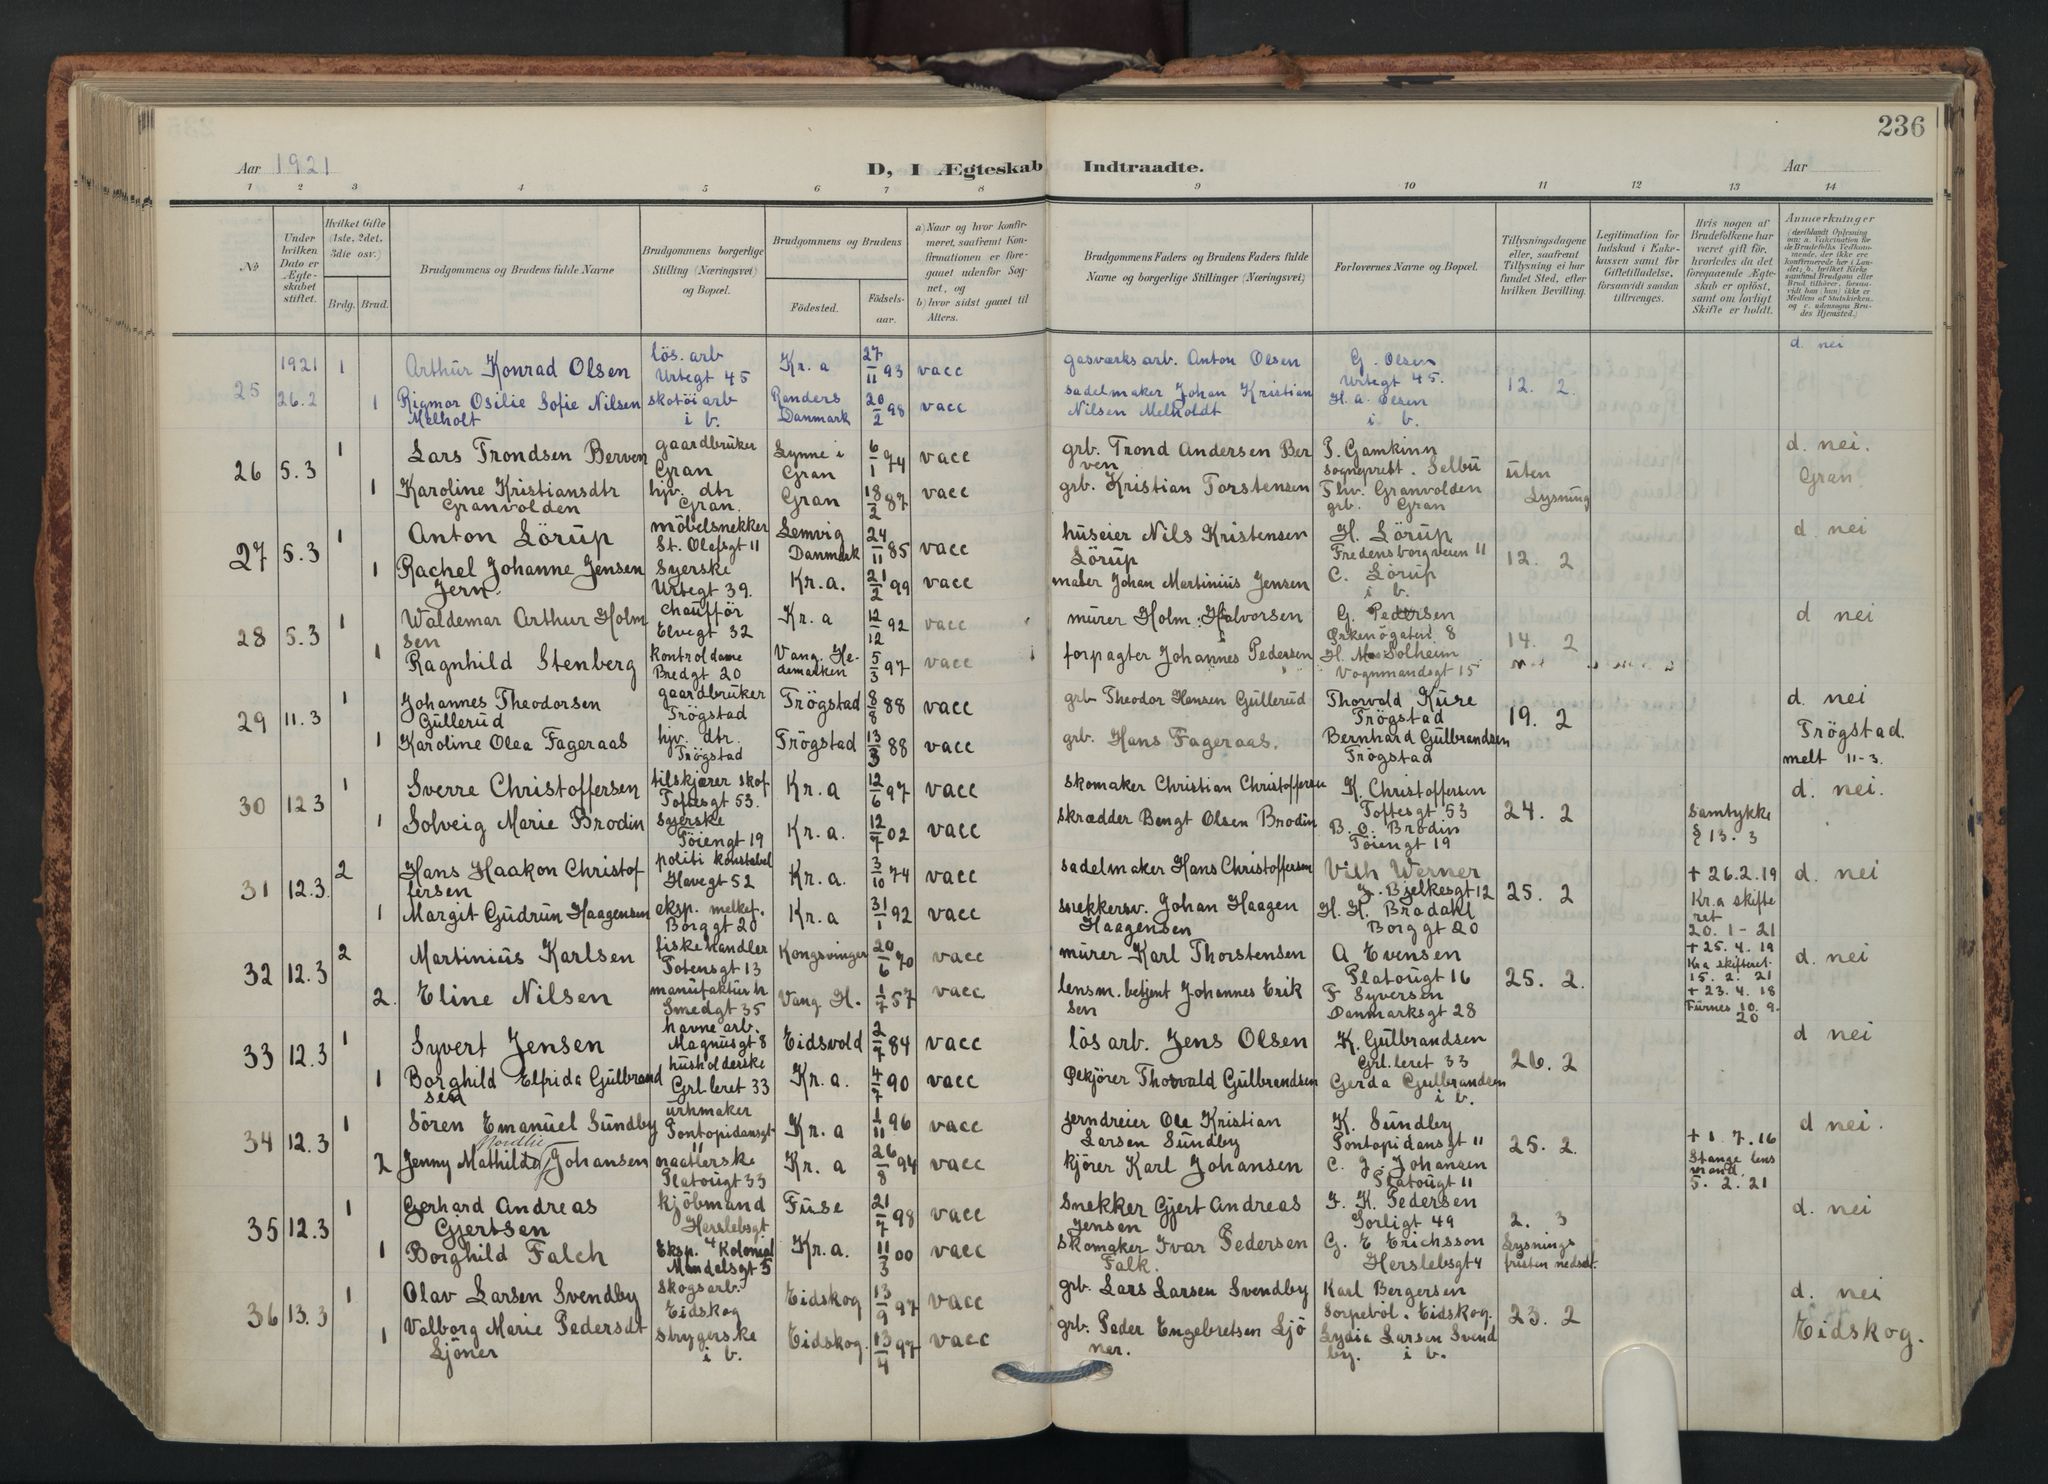 236
Aar 1921 D, I Ægteskab Indtraadte. Aar
1 2 3 4 5 6 7 8 9 10 11 12 13 14
No
Under hvilken Dato er Ægteskabet stiftet.
Hvilket Gifte (1ste, 2det, 3die osv.)
Brdg. Brud.
Brudgommens og Brudens fulde Navne
Brudgommens borgerlige Stilling (Næringsvei) og Bopæl.
Brudgommens og Brudens
Fødested. Fødselsaar.
a) Naar og hvor konfirmeret, saafremt Konfirmationen er foregaaet udenfor Sognet, og
b) hvor sidst gaaet til Alters.
Brudgommens Faders og Brudens Faders fulde Navne og borgerlige Stillinger (Næringsvei)
Forlovernes Navne og Bopæl.
Tillysningsdagene eller, saafremt Tillysning ei har fundet Sted, efter hvilken Bevilling.
Legitimation for Indskud i Enkekassen samt for Giftetilladelse, forsaavidt saadan tiltrænges.
Hvis nogen af Brudefolkene har været gift før, hvorledes da det foregaaende Ægteskab er opløst, samt om lovligt Skifte er holdt.
Anmerkninger
(deriblandt Oplysning om: a. Vakcination for de Brudefolks Vedkommende, der ikke ere konfirmerede her i Landet; b. hvilket Kirkesamfund Brudgom eller Brud tilhører, forsaavidt han (hun) ikke er Medlem af Statskirken, og c. udensogns Brudes Hjemsted.)
25 1921 26.2 1 Arthur Konrad Olsen lös. arb Urtegt 45 Kr. a 27/11 93 vacc gasværksarb. Anton Olsen G. Olsen Urtegt 45. 12. 2. d. nei
1 Rigmor Osilie Sofie Nilsen Melholt skotöiarb i b. Randers Danmark 20/2 98 vacc sadelmaker Johan Kristian Nilsen Melholdt H. A. Olsen i b.
26 5.3 1 Lars Trondsen Berven gaardbruker Gran Lynne i Gran 6/1 74 vacc grb. Trond Andersen Berven P. Gamkinn sogneprest. Selbu uten Lysning d. nei.
1 Karoline Kristiansdtr Granvolden hjv. dtr Gran. Gran 18/2 87 vacc grb. Kristian Torstensen Thv. Granvolden grb. Gran Gran
27 5.3 1 Anton Lörup möbelsnekker St. Olafsgt 11 Lemvig Danmark 24/11 85 vacc huseier Nils Kristensen Lörup H. Lörup Fredensborgveien 11 12. 2 d. nei
1 Rachel Johanne Jensen Jern. syerske Urtegt 39. Kr. a. 21/2 99 vacc maler Johan Martinius Jensen C. Lörup i b.
28 5.3 1 Waldemar Arthur Holmsen chaufför Elvegt 32 Kr. a 12/12 92 vacc mürer Holm Halvorsen G. Pedersen 8 14. 2 d nei
1 Ragnhild Stenberg kontroldame Bredgt 20 Vang. Hedemarken 5/3 97 vacc forpagter Johannes Pedersen H. M. Solheim Vognmandsgt 15
29 11.3 1 Johannes Theodorsen Güllerud gaardbruker Trögstad Trögstad 8/8 88 vacc grb Theodor Hansen Güllerud Thorvald Küre Trögstad 19. 2 d. nei
1 Karoline Olea Fageraas hjv. dtr. Trögstad Trögstad 13/3 88 vacc grb. Hans Fageraas. Bernhard Gulbrandsen Trögstad Trögstad. melt 11-3.
30 12.3 1 Sverre Christoffersen tilskjærer skof Toftesgt 53. Kr. a 12/6 97 vacc skomaker Christian Christoffersen K. Christoffersen Toftesgt 53 24. 2 d. nei.
1 Solveig Marie Brodin syerske Töiengt 19 Kr. a. 12/7 02 vacc skrædder Bengt Olsen Brodin B. O. Brodin Töiengt 19 Samtykke § 13. 3
31 12.3. 2 Hans Haakon Christoffersen politi konstabel Havegt 52 Kr. a. 3/10 74 vacc sadelmaker Hans Christoffersen Vilh Werner J. Bjelkesgt 12 25. 2 + 26.2.19 Kr.a skifteret 20. 1 - 21 d. nei
1 Margit Güdrün Haagensen eksp. melkef. Borggt 20 Kr. a 31/1 92 vacc snekkersv. Johan Haagen Haagensen H. H. Brodahl Borggt 20
32 12.3 2 Martiniüs Karlsen fiskehandler Totensgt 13 Kongsvinger 20/6 70 vacc mürer Karl Thorstensen A Evensen Platougt 16 25. 2. + 25. 4. 19 Kr.a skifteret 15. 2. 21 d. nei
2. Eline Nilsen manufaktur h Smedgt 35 Vang H. 1/7 57 vacc lensm. betjent Johannes Eriksen F Syversen Danmarksgt 28 + 23. 4. 18 Fürnes 10. 9. 20
33 12.3 1 Syvert Jensen havne arb. Magnusgt 8 Eidsvold 2/7 84 vacc lös arb. Jens Olsen K. Gülbrandsen Grl. leret 33 26. 2 d nei
1 Borghild Elfrida Gülbrandsen husholderske Grl leret 33 Kr. a. 4/7 90 vacc Pekjörer Thorvald Gülbrandsen Gerda Gulbrandsen i b.
34 12.3 1 Sören Emanuel Sündby ürhmaker Pontopidansgt 11 Kr. a 1/11 96 vacc jerndreier Ole Kristian Larsen Sündby K. Sündby Pontopidansgt 11 25. 2. d nei.
2 Jenny Mathilde Nordlie Johansen naatlerske Platougt 33 Kr. a 26/8 94 vacc kjörer Karl Johansen C. J. Johansen Platougt 11 + 1. 7. 16 Stange lensmand. 5. 2. 21
35 12.3 1 Gerhard Andreas Gjertsen kjöbmand Herslebsgt 4 Füse 21/7 98 vacc Snekker Gjert Andreas Jensen F. K. Pedersen Sorligt 49 2. 3 Lysnings fristen nedsat. d. nei
1 Borghild Falch Eksp. Kolonial Mandalsgt 5 Kr. a. 11/3 00 vacc skomaker Ivar Pedersen Falk. G. E Erichsson Herslebsgt 4
36 13.3 1 Olav Larsen Svendby skogsarb. Eidskog Eidskog 13/9 97 vacc grb. Lars Larsen Svendby Karl Bergersen Sorpeböl. Eidskog. 23. 2 d. nei
1 Valborg Marie Pedersdt Ljöner strygerske i b. Eidskog. 13/4 97 vacc grb. Peder Engebretsen Ljöner. Lydia Larsen Svendby. i b. Eidskog.